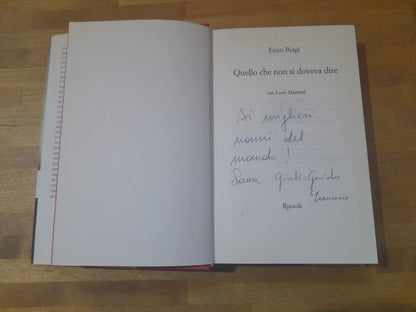 Enzo Biagi
Quello che non si doveva dire
con Loris Mazzetti
Ai migliori
nonni del
mondo!
Giulio Guido
Rizzoli